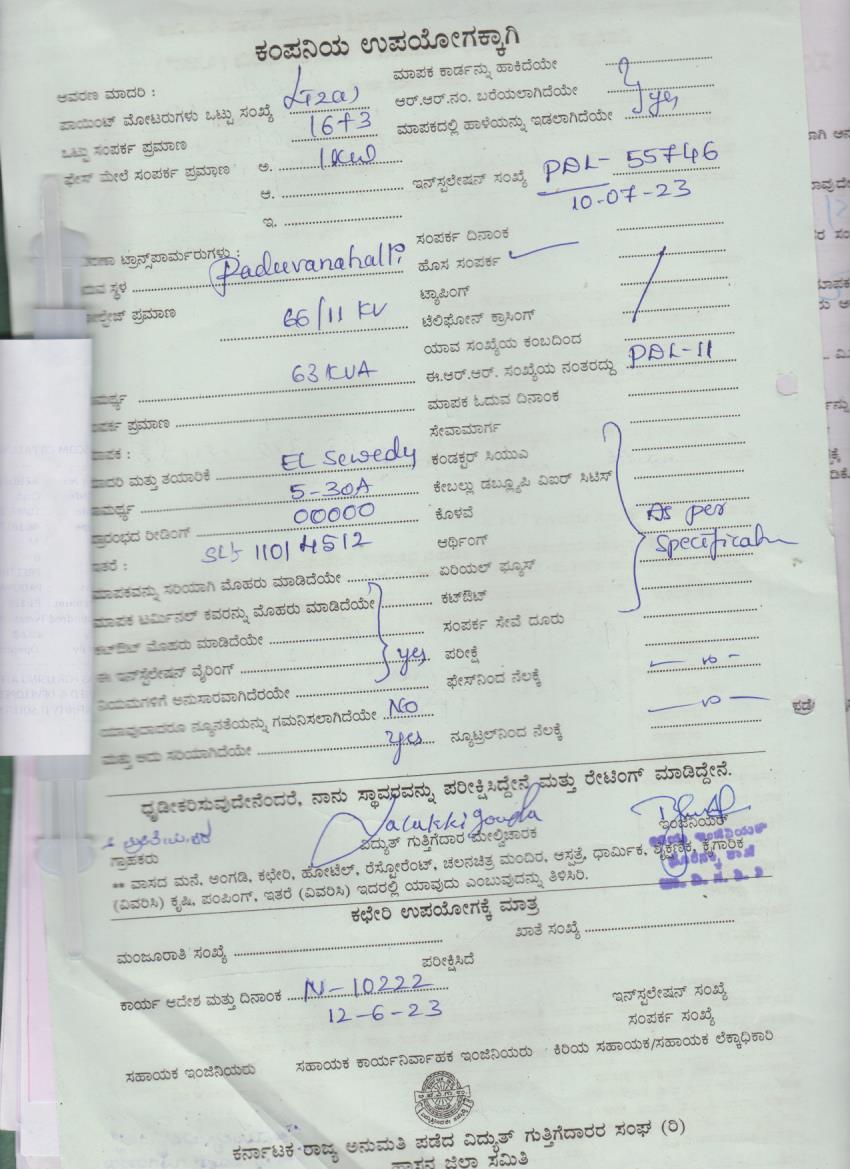 ಕಂಪನಿಯ ಉಪಯೋಗಕ್ಕಾಗಿ
ಆವರಣ ಮಾದರಿ : LT2(a) ಮಾಪಕ ಕಾರ್ಡನ್ನು ಹಾಕಿದೆಯೇ
ಪಾಯಿಂಟ್ ಮೋಟರುಗಳು ಒಟ್ಟು ಸಂಖ್ಯೆ 16+3 ಆರ್.ಆರ್.ನಂ. ಬರೆಯಲಾಗಿದೆಯೇ yes
ಒಟ್ಟು ಸಂಪರ್ಕ ಪ್ರಮಾಣ 1KW ಮಾಪಕದಲ್ಲಿ ಹಾಳೆಯನ್ನು ಇಡಲಾಗಿದೆಯೇ
ಫೇಸ್ ಮೇಲೆ ಸಂಪರ್ಕ ಪ್ರಮಾಣ ಅ. ಇನ್‌ಸ್ಟಲೇಷನ್ ಸಂಖ್ಯೆ PDL- 55746
ಆ. 10-07-23
ಇ.
ಟ್ರಾನ್ಸ್‌ಪಾರ್ಮರುಗಳು : ಸಂಪರ್ಕ ದಿನಾಂಕ
ಸ್ಥಳ Paduvanahalli ಹೊಸ ಸಂಪರ್ಕ
ಪ್ರಮಾಣ 66/11 KV ಟ್ಯಾಪಿಂಗ್
ಟೆಲಿಫೋನ್ ಕ್ರಾಸಿಂಗ್
ಯಾವ ಸಂಖ್ಯೆಯ ಕಂಬದಿಂದ
63 KVA ಈ.ಆರ್.ಆರ್. ಸಂಖ್ಯೆಯ ನಂತರದ್ದು PDL-11
ಪ್ರಮಾಣ ಮಾಪಕ ಓದುವ ದಿನಾಂಕ
ಸೇವಾಮಾರ್ಗ
ಮಾದರಿ ಮತ್ತು ತಯಾರಿಕೆ EL Sewedy ಕಂಡಕ್ಟರ್ ಸಿಯುಎ
5-30A ಕೇಬಲ್ಲು ಡಬ್ಲ್ಯೂಪಿ ವಿಐರ್ ಸಿಟಿಸ್
ರೀಡಿಂಗ್ 00000 ಕೊಳವೆ As per
11014512 ಆರ್ಥಿಂಗ್ Specification
ಮಾಪಕವನ್ನು ಸರಿಯಾಗಿ ಮೊಹರು ಮಾಡಿದೆಯೇ ಏರಿಯಲ್ ಫ್ಯೂಸ್
ಮಾಪಕ ಟರ್ಮಿನಲ್ ಕವರನ್ನು ಮೊಹರು ಮಾಡಿದೆಯೇ ಕಟ್‌ಔಟ್
ಕಟ್‌ಔಟ್ ಮೊಹರು ಮಾಡಿದೆಯೇ ಸಂಪರ್ಕ ಸೇವೆ ದೂರು
ಈ ಇನ್‌ಸ್ಟಲೇಷನ್ ವೈರಿಂಗ್ yes ಪರೀಕ್ಷೆ
ನಿಯಮಗಳಿಗೆ ಅನುಸಾರವಾಗಿದೆರಯೇ ಫೇಸ್‌ನಿಂದ ನೆಲಕ್ಕೆ
ಯಾವುದಾದರೂ ನ್ಯೂನತೆಯನ್ನು ಗಮನಿಸಲಾಗಿದೆಯೇ No
ಮತ್ತು ಅದು ಸರಿಯಾಗಿದೆಯೇ Yes ನ್ಯೂಟ್ರಲ್‌ನಿಂದ ನೆಲಕ್ಕೆ
ಧೃಡೀಕರಿಸುವುದೇನೆಂದರೆ, ನಾನು ಸ್ಥಾವರವನ್ನು ಪರೀಕ್ಷಿಸಿದ್ದೇನೆ ಮತ್ತು ರೇಟಿಂಗ್ ಮಾಡಿದ್ದೇನೆ.
ಗ್ರಾಹಕರು ವಿದ್ಯುತ್ ಗುತ್ತಿಗೆದಾರ ಮೇಲ್ವಿಚಾರಕ ಇಂಜಿನಿಯರ್
** ವಾಸದ ಮನೆ, ಅಂಗಡಿ, ಕಛೇರಿ, ಹೋಟೆಲ್, ರೆಸ್ಟೋರೆಂಟ್, ಚಲನಚಿತ್ರ ಮಂದಿರ, ಆಸ್ಪತ್ರೆ, ಧಾರ್ಮಿಕ, ಶೈಕ್ಷಣಿಕ, ಕೈಗಾರಿಕ
(ವಿವರಿಸಿ) ಕೃಷಿ, ಪಂಪಿಂಗ್, ಇತರೆ (ವಿವರಿಸಿ) ಇದರಲ್ಲಿ ಯಾವುದು ಎಂಬುವುದನ್ನು ತಿಳಿಸಿರಿ.
ಕಛೇರಿ ಉಪಯೋಗಕ್ಕೆ ಮಾತ್ರ
ಮಂಜೂರಾತಿ ಸಂಖ್ಯೆ ಖಾತೆ ಸಂಖ್ಯೆ
ಪರೀಕ್ಷಿಸಿದೆ
ಕಾರ್ಯ ಆದೇಶ ಮತ್ತು ದಿನಾಂಕ N-10222 ಇನ್‌ಸ್ಟಲೇಷನ್ ಸಂಖ್ಯೆ
12-6-23 ಸಂಪರ್ಕ ಸಂಖ್ಯೆ
ಸಹಾಯಕ ಇಂಜಿನಿಯರು ಸಹಾಯಕ ಕಾರ್ಯನಿರ್ವಾಹಕ ಇಂಜಿನಿಯರು ಕಿರಿಯ ಸಹಾಯಕ/ಸಹಾಯಕ ಲೆಕ್ಕಾಧಿಕಾರಿ
ಕರ್ನಾಟಕ ರಾಜ್ಯ ಅನುಮತಿ ಪಡೆದ ವಿದ್ಯುತ್ ಗುತ್ತಿಗೆದಾರರ ಸಂಘ (ರಿ)
ಹಾಸನ ಜಿಲ್ಲಾ ಸಮಿತಿ